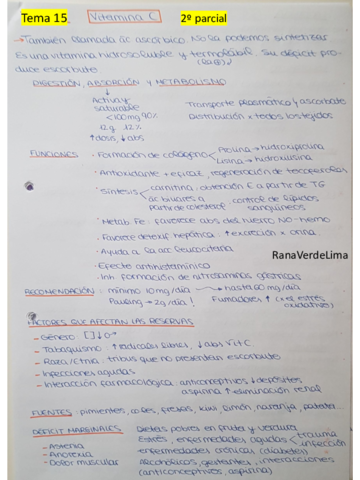 Tema 15 Vitamina C 2º parcial
→ También llamada ác ascórbico. No la podemos sintetizar
Es una vitamina hidrosoluble y termolábil. Su déficit pro-
duce escorbuto
DIGESTIÓN, ABSORCIÓN Y METABOLISMO
Activa y saturable Transporte plasmático y ascorbato
<100mg 90% Distribución x todos los tejidos
12g 12%
↑dosis, ↓abs
FUNCIONES · Formación de colágeno Prolina → hidroxiprolina
Lisina → hidroxilisina
· Antioxidante + eficaz, regeneración de tocoferoles
· Síntesis carnitina: obtención E a partir de TG
ác biliares a partir de colesterol control de lípidos sanguíneos
· Metab Fe: favorece abs del hierro No-hemo
· Favorece detoxif hepática ↑ excreción x orina
· Ayuda a la acc leucocitaria
· Efecto antihistamínico
RanaVerdeLima
· Inh formación de nitrosaminas gástricas
RECOMENDACIÓN: mínimo 10mg/día → hasta 60 mg/día
Pauling → 2g/día! Fumadores ↑ (x el estrés oxidativo)
FACTORES QUE AFECTAN LAS RESERVAS
- Género [ ]↓
- Tabaquismo ↑ radicales libres, ↓ abs Vit C
- Raza/Etnia: tribus que no presentan escorbuto
- Infecciones agudas
- Interacción farmacológica: anticonceptivos ↓ depósitos
aspirina ↑ eliminación renal
FUENTES pimientos, coles, fresas, kiwi, limón, naranja, patata...
DÉFICIT MARGINALES Dietas pobres en fruta y verdura
- Astenia Estrés, enfermedades agudas trauma infección
- Anorexia enfermedades crónicas (diabetes)
- Dolor muscular Alcohólicos, gestantes, interacciones
(anticonceptivos, aspirina)